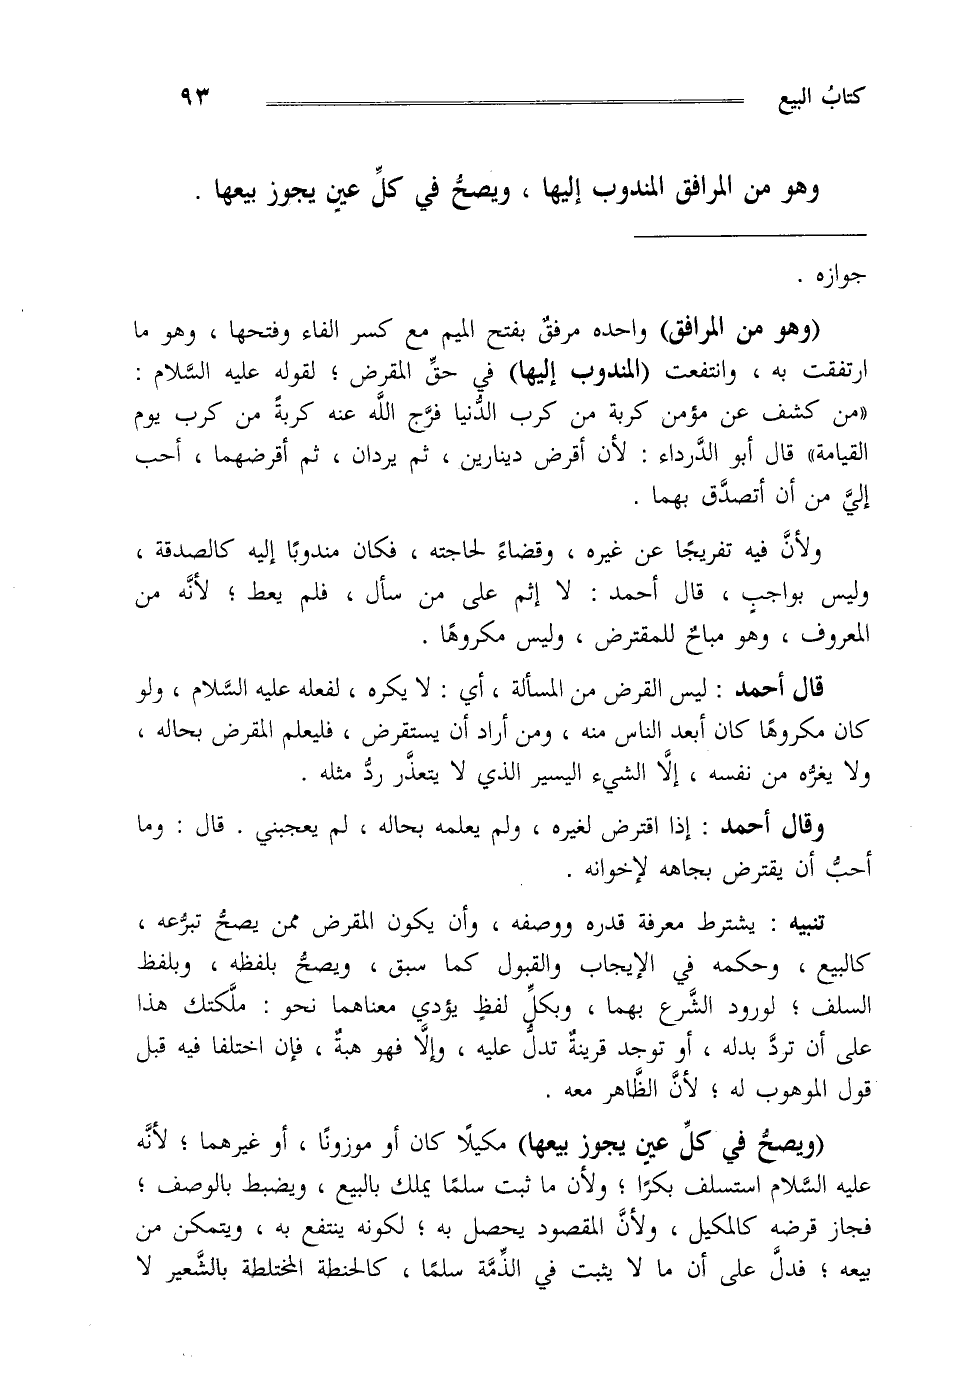 كتابُ البيع ٩٣
وهو من المرافق المندوب إليها ، ويصحُّ في كلِّ عينٍ يجوز بيعها .
جوازه .
(وهو من المرافق) واحده مرفقٌ بفتح الميم مع كسر الفاء وفتحها ، وهو ما
ارتفقت به ، وانتفعت (المندوب إليها) في حقِّ المقرض ؛ لقوله عليه السَّلام :
«من كشف عن مؤمن كربة من كرب الدُّنيا فرَّج اللَّه عنه كربةً من كرب يوم
القيامة» قال أبو الدَّرداء : لأن أقرض دينارين ، ثم يردان ، ثم أقرضهما ، أحب
إليَّ من أن أتصدَّق بهما .
ولأنَّ فيه تفريجًا عن غيره ، وقضاءً لحاجته ، فكان مندوبًا إليه كالصدقة ،
وليس بواجبٍ ، قال أحمد : لا إثم على من سأل ، فلم يعط ؛ لأنَّه من
المعروف ، وهو مباحٌ للمقترض ، وليس مكروهًا .
قال أحمد : ليس القرض من المسألة ، أي : لا يكره ، لفعله عليه السَّلام ، ولو
كان مكروهًا كان أبعد الناس منه ، ومن أراد أن يستقرض ، فليعلم المقرض بحاله ،
ولا يغرُّه من نفسه ، إلَّا الشيء اليسير الذي لا يتعذَّر ردُّ مثله .
وقال أحمد : إذا اقترض لغيره ، ولم يعلمه بحاله ، لم يعجبني . قال : وما
أحبُّ أن يقترض بجاهه لإخوانه .
تنبيه : يشترط معرفة قدره ووصفه ، وأن يكون المقرض ممن يصحُّ تبرُّعه ،
كالبيع ، وحكمه في الإيجاب والقبول كما سبق ، ويصحُّ بلفظه ، وبلفظ
السلف ؛ لورود الشَّرع بهما ، وبكلِّ لفظٍ يؤدي معناهما نحو : ملَّكتك هذا
على أن تردَّ بدله ، أو توجد قرينةٌ تدلُّ عليه ، وإلَّا فهو هبةٌ ، فإن اختلفا فيه قبل
قول الموهوب له ؛ لأنَّ الظَّاهر معه .
(ويصحُّ في كلِّ عينٍ يجوز بيعها) مكيلًا كان أو موزونًا ، أو غيرهما ؛ لأنَّه
عليه السَّلام استسلف بكرًا ؛ ولأن ما ثبت سلمًا يملك بالبيع ، ويضبط بالوصف ؛
فجاز قرضه كالمكيل ، ولأنَّ المقصود يحصل به ؛ لكونه ينتفع به ، ويتمكن من
بيعه ؛ فدلَّ على أن ما لا يثبت في الذِّمَّة سلمًا ، كالحنطة المختلطة بالشَّعير لا